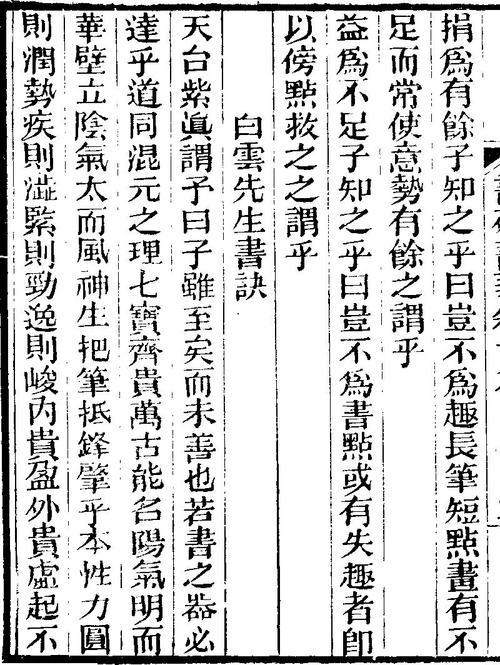 捐爲有餘子知之乎曰豈不爲趣長筆短點畫有不
足而常使意勢有餘之謂乎
益爲不足子知之乎曰豈不爲書點或有失趣者卽
以傍點拔之之謂乎
白雲先生書訣
天台紫眞謂予曰子雖至矣而未善也若書之器必
達乎道同混元之理七寶齊貴萬古能名陽氣明而
華壁立陰氣太而風神生把筆抵鋒肇乎本性力圓
則潤勢疾則澁緊則勁逸則峻内貴盈外貴虛起不